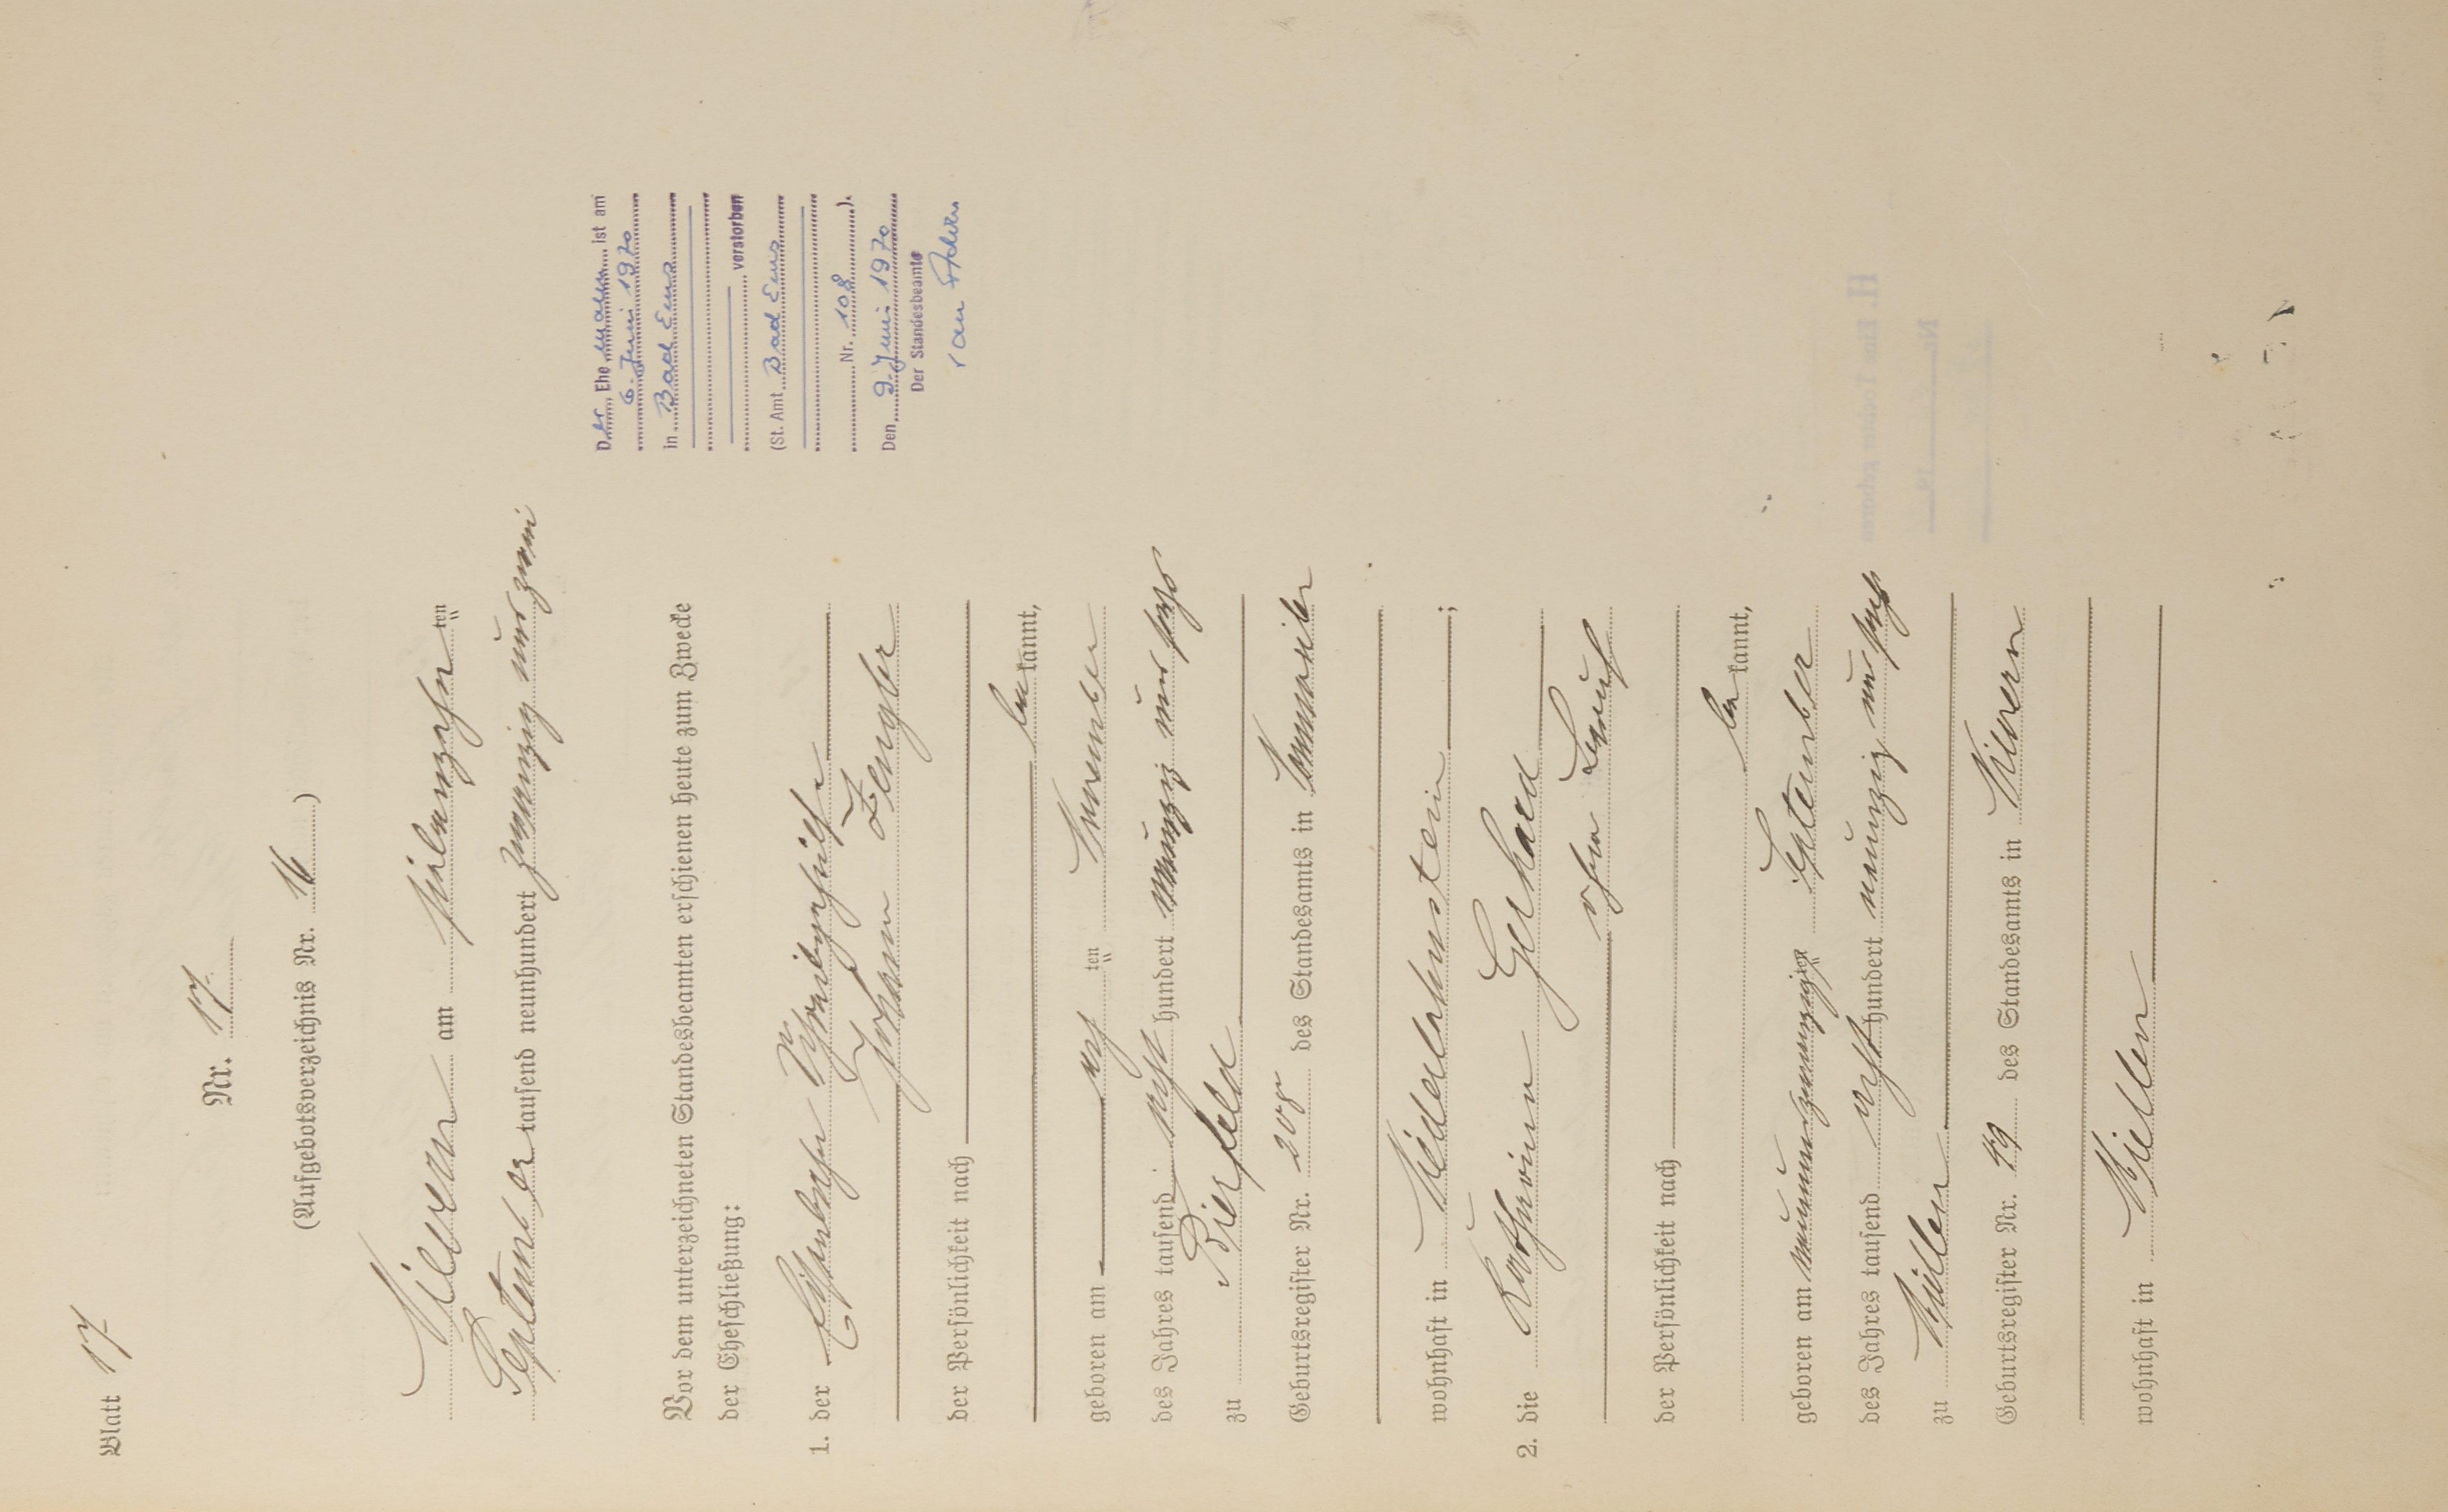 Blatt 17
Nr. 17.
(Aufgebotsverzeichnis Nr. 16)
Nievern am siebenzehn ten
September tausend neunhundert zwanzig und zwei
Vor dem unterzeichneten Standesbeamten erschienen heute zum Zwecke
der Eheschließung:
1. der Eisenbahn
Johann Zengler
der Persönlichkeit nach
be kannt,
geboren am acht ten November
des Jahres tausend acht hundert neunzig und sechs
zu Bierfeld
Geburtsregister Nr. 208 des Standesamts in
wohnhaft in Niederlahnstein;
2. die Katharina Gerhard
ohne Beruf
der Persönlichkeit nach
be kannt,
geboren am neunundzwanzigsten September
des Jahres tausend acht hundert neunzig und sechs
zu Miellen
Geburtsregister Nr. 49 des Standesamts in Nievern
wohnhaft in Miellen
Der Ehemann ist am
6. Juni 1970
in Bad Ems
verstorben
(St. Amt Bad Ems
Nr. 108).
Den 9. Juni 1970
Der Standesbeamte